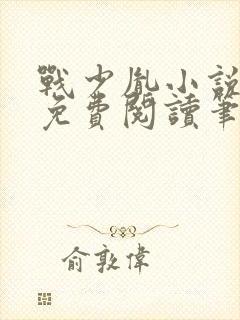 戰少胤小說
免費閱讀筆
俞敦偉